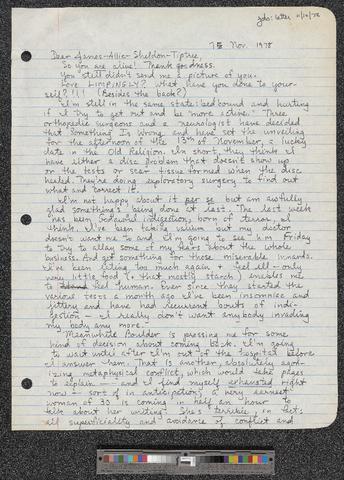 jdr: letter 11/10/78
7 Nov. 1978
Dear James-Allie-Sheldon-Tiptree,
So you are alive! Thank goodness.
You still didn't send me a picture of you.
Love LIMPINGLY? What have you done to your-
self?!!! (Besides the back?)
I'm still in the same state: bedbound and hurting
if I try to get out and be more active. Three
orthopedic surgeons and a neurologist have decided
that Something Is Wrong and have set the unveiling
for the afternoon of the 13th of November, a lucky
date in the Old Religion. In short, they think I
have either a disc problem that doesn't show up
on the tests or scar tissue formed when the disc
healed. They're doing exploratory surgery to find out
what and correct it.
I'm not happy about it per se but am awfully
glad something's being done at last. The last week
has been Godawful indigestion, born of terror, I
think. I've been taking valium but my doctor
doesn't want me to and I'm going to see him Friday
to try to allay some of my fears about the whole
business. And get something for those miserable innards.
I've been eating too much again &
very little food (& that mostly starch) enables me
to feel human. Ever since they started the
various tests a month ago I've been insomniac and
jittery and have had recurrent bouts of indi-
gestion — I really don't want anybody invading
my body any more.
Meanwhile Boulder is pressing me for some
kind of decision about coming back. I'm going
to wait until after I'm out of the hospital before
I answer them. That is another, absolutely agon-
izing metaphysical conflict, which would take pages
to explain — and I find myself exhausted right
now — sort of in anticipation; a very earnest
woman of 33 is coming in half an hour to
talk about her writing. She's terrific, in fact:
all superficiality and avoidance of conflict and